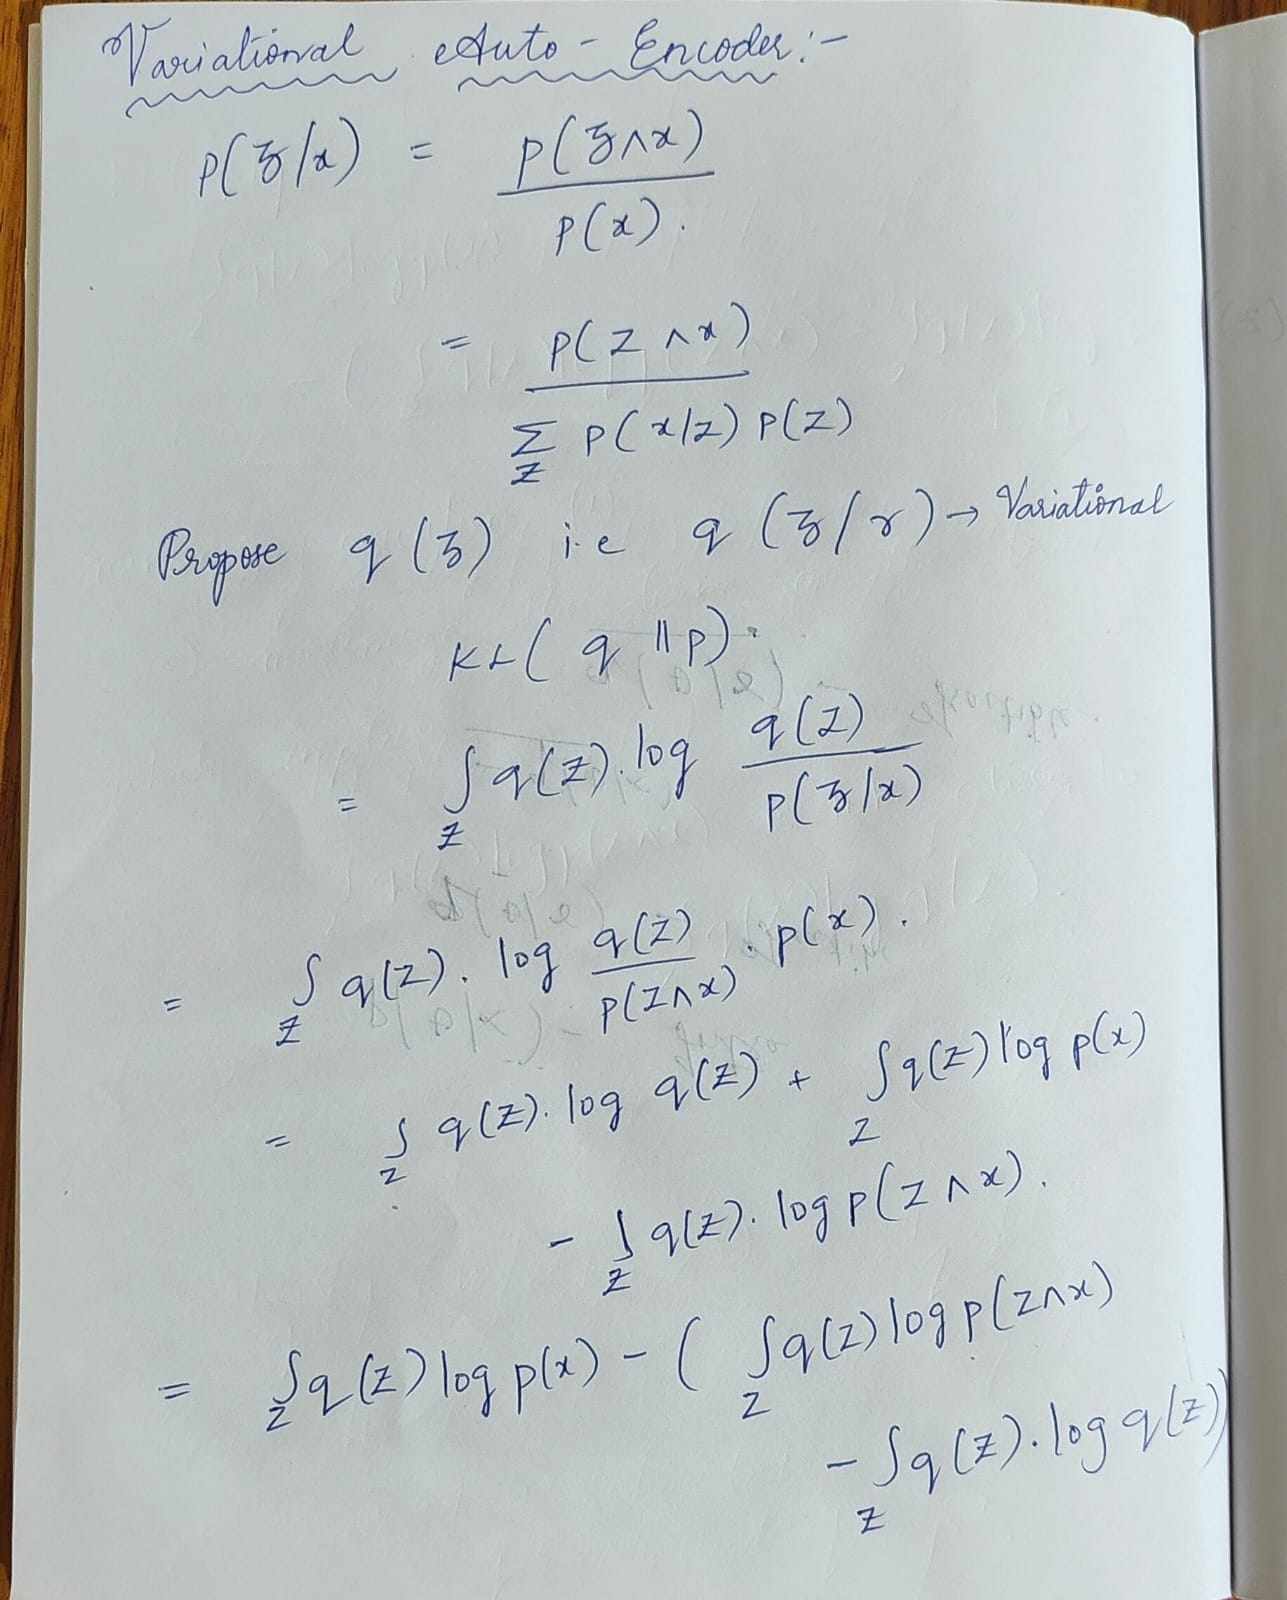 Variational Auto-Encoder:-
p(z/x) = p(z∧x)
p(x).
= p(z∧x)
∑ p(x/z) p(z)
z
Propose q(z) i.e q(z/x) → Variational
KL(q || p).
= ∫ q(z). log q(z)
z p(z/x)
= ∫ q(z). log q(z) . p(x).
z p(z∧x)
= ∫ q(z). log q(z) + ∫ q(z) log p(x)
z z
- ∫ q(z). log p(z∧x).
z
= ∫ q(z) log p(x) - ( ∫ q(z) log p(z∧x)
z z
- ∫ q(z). log q(z))
z